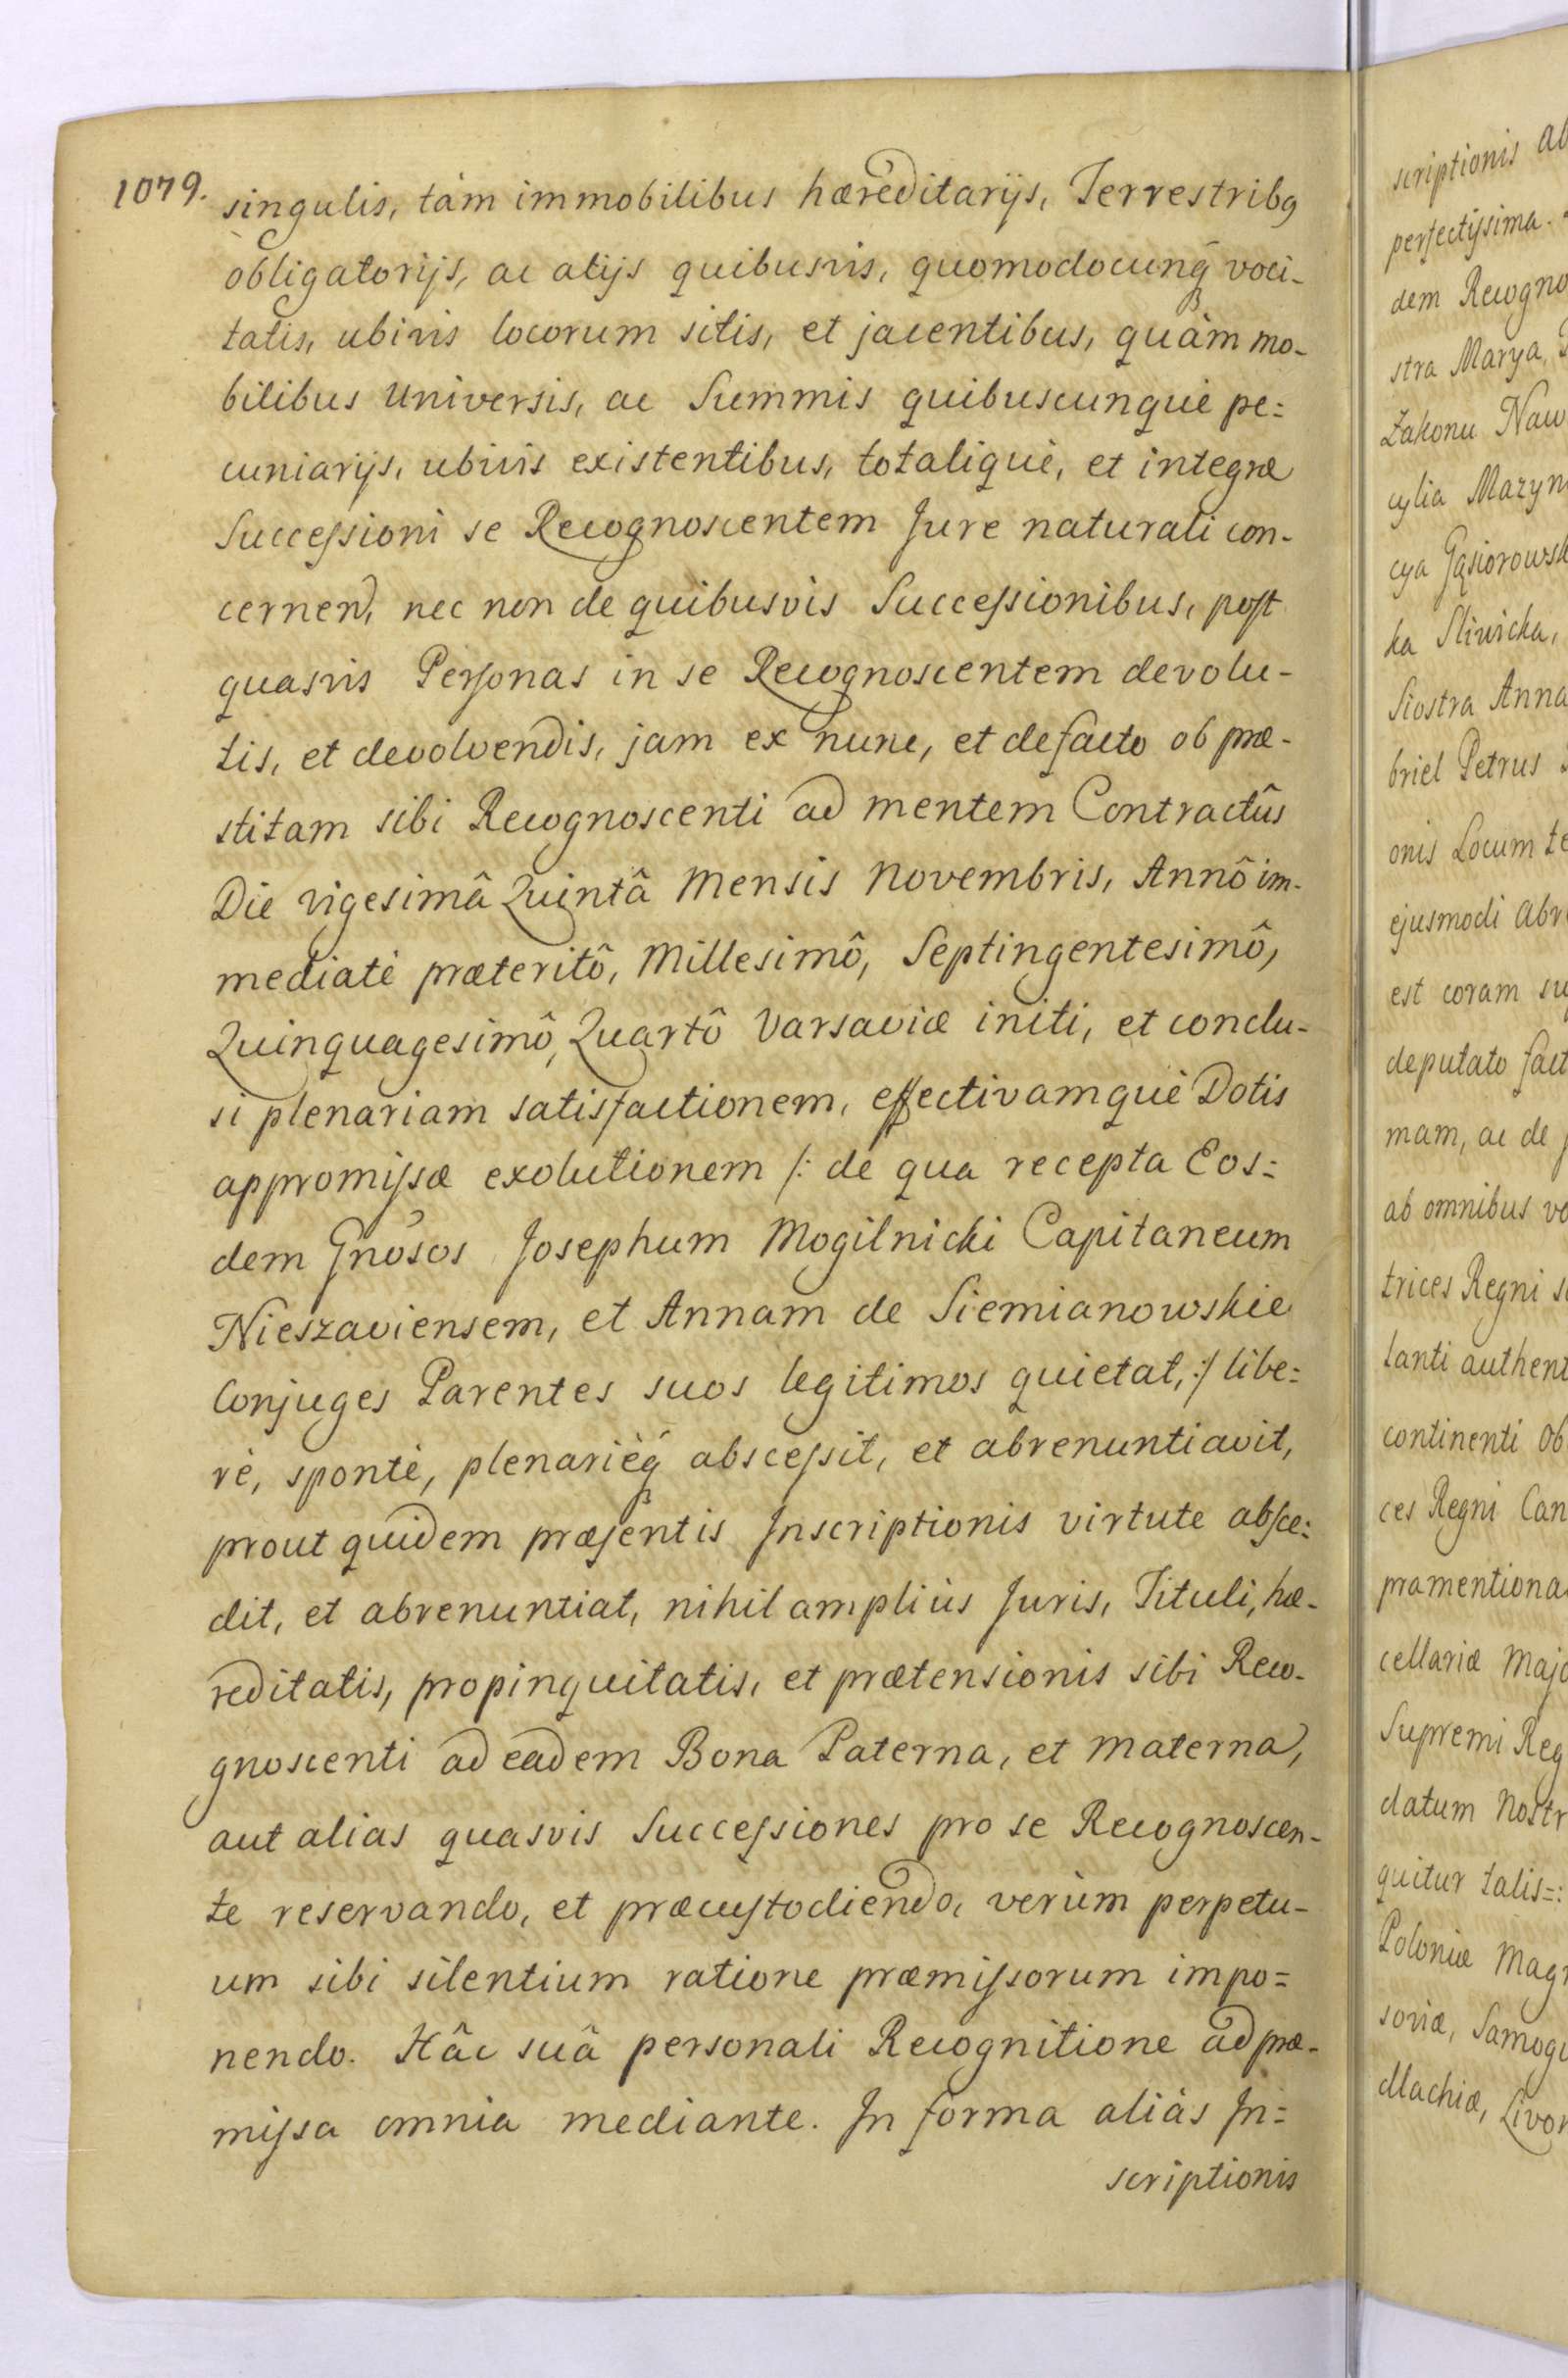 1079.
singulis, tàm immobilibus hæreditarijs, Terrestribꝯ
obligatorijs, ac alijs quibusvis, quomodocunq́ voci-
tatis, ubivis locorum sitis, et jacentibus, quàm mo-
bilibus Universis, ac Summis quibuscunquè pe=
cuniarijs, ubivis existentibus, totaliquè, et integræ
Successioni se Recognoscentem Jure naturali con-
cernen, nec non de quibusvis Successionibus, post
quasvis Personas in se Recognoscentem devolu-
tis, et devolvendis, jam ex nunc, et defacto ob præ-
stitam sibi Recognoscenti ad mentem Contractûs
Die vigesimâ Quintâ Mensis Novembris, Annô im-
mediatè præteritô, Millesimô, Septingentesimô,
Quinquagesimô, Quartô Varsaviæ initi, et conclu-
si plenariam satisfactionem, effectivamquè Dotis
appromissæ exolutionem /: de qua recepta Eos=
dem Gnosos Josephum Mogilnicki Capitaneum
Nieszaviensem, et Annam de Siemianowskie
Conjuges Parentes suos legitimos quietat, :/ libe=
rè, spontè, plenarièq́ abscessit, et abrenuntiavit,
prout quidem præsentis Inscriptionis virtute absce=
dit, et abrenuntiat, nihil ampliùs Juris, Tituli, hæ-
reditatis, propinquitatis, et prætensionis sibi Reco-
gnoscenti ad eadem Bona Paterna, et Materna,
aut alias quasvis Successiones pro se Recognoscen-
te reservando, et præcustodiendo, verùm perpetu-
um sibi silentium ratione præmissorum impo=
nendo. Hâc suâ personali Recognitione ad præ-
missa omnia mediante. In forma aliàs In=
scriptionis
scriptionis
perfectissima.
dem Recogno
stra Marya,
Zakonu Naw
cylia Mazyn
cya Gąsiorowsk
ka Sliwicka,
Siostra Anna
briel Petrus
onis Locum te
ejusmodi abr
est coram su
deputato fact
mam, ac de
ab omnibus vo
trices Regni s
lanti authent
continenti Ob
ces Regni Can
pramentiona
cellariæ Majo
Supremi Reg
datum Nostr
quitur talis=:
Poloniæ Mag
soviæ, Samogi
dlachiæ, Livon